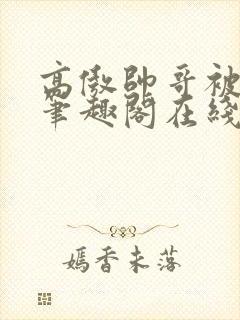 高傲帥哥被
筆趣閣在綫
嫣香未落